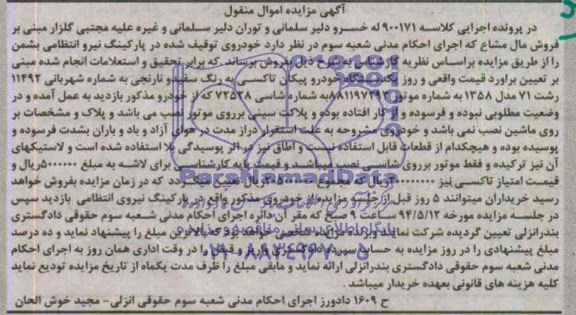 آگهی مزایده اموال منقول
در پرونده اجرایی کلاسه ۹۰۰۱۷۱ له خسرو دلیر سلمانی و توران دلیر سلمانی و غیره علیه مجتبی گلزار مبنی بر
فروش مال مشاع که اجرای احکام مدنی شعبه سوم در نظر دارد خودروی توقیف شده در پارکینگ نیرو انتظامی بشمن
را از طریق مزایده براساس نظریه بفروش برساند که برابر تحقیق و استعلامات انجام شده مبنی
بر تعیین برآورد قیمت واقعی و روز یکدستگاه خودرو پیکان تاکسی به رنگ سفید و نارنجی به شماره شهربانی ۱۱۴۹۲
رشت ۷۱ مدل ۱۳۵۸ به شماره موتور به شماره شاسی ۷۲۵۳۸ که از خودرو مذکور بازدید به عمل آمده و در
وضعیت مطلوبی نبوده و فرسوده و از کار افتاده بوده و پلاک سیمی برروی موتور نصب می باشد و پلاک و مشخصات بر
روی ماشین نصب نمی باشد و خودروی مشروحه به علت استقرار دراز مدت در هوای آزاد و باد و باران بشدت فرسوده و
پوسیده بوده و هیچکدام از قطعات قابل استفاده نیست و اطاق نیز در اثر پوسیدگی بلا استفاده شده است و لاستیکهای
آن نیز ترکیده و فقط موتور برروی شاسی نصب میباشد و قیمت پایه کارشناسی برای لاشه به مبلغ ریال و
قیمت امتیاز تاکسی نیز ریال که مجموع ریال تعیین میگردد که در زمان مزایده بفروش خواهد
رسید خریداران میتوانند ۵ روز قبل از جلسه مزایده از خودروی مذکور واقع در پارکینگ نیروی انتظامی بازدید سپس
در جلسه مزایده مورخه ۹۴/۵/۱۲ ساعت ۹ صبح که مقر آن دائره اجرای احکام مدنی شعبه سوم حقوقی دادگستری
بندرانزلی تعیین گردیده شرکت نمایند برنده مزایده شخصی خواهد بود که بالاترین مبلغ را پیشنهاد نماید و ده درصد
مبلغ پیشنهادی را در روز مزایده به حساب سپرده دادگستری واریز و فیش را در وقت اداری همان روز به اجرای احکام
مدنی شعبه سوم حقوقی دادگستری بندرانزلی ارائه نماید و مابقی مبلغ را ظرف مدت یکماه از تاریخ مزایده تودیع نماید
کلیه هزینه های قانونی بعهده خریدار میباشد.
ح ۱۶۰۹ دادورز اجرای احکام مدنی شعبه سوم حقوقی انزلی- مجید خوش الحان
ParsNamadData
پایگاه اطلاع رسانی مناقصه و مزایده
۰۲۱-۸۸۳۴۹۶۷۰-۵